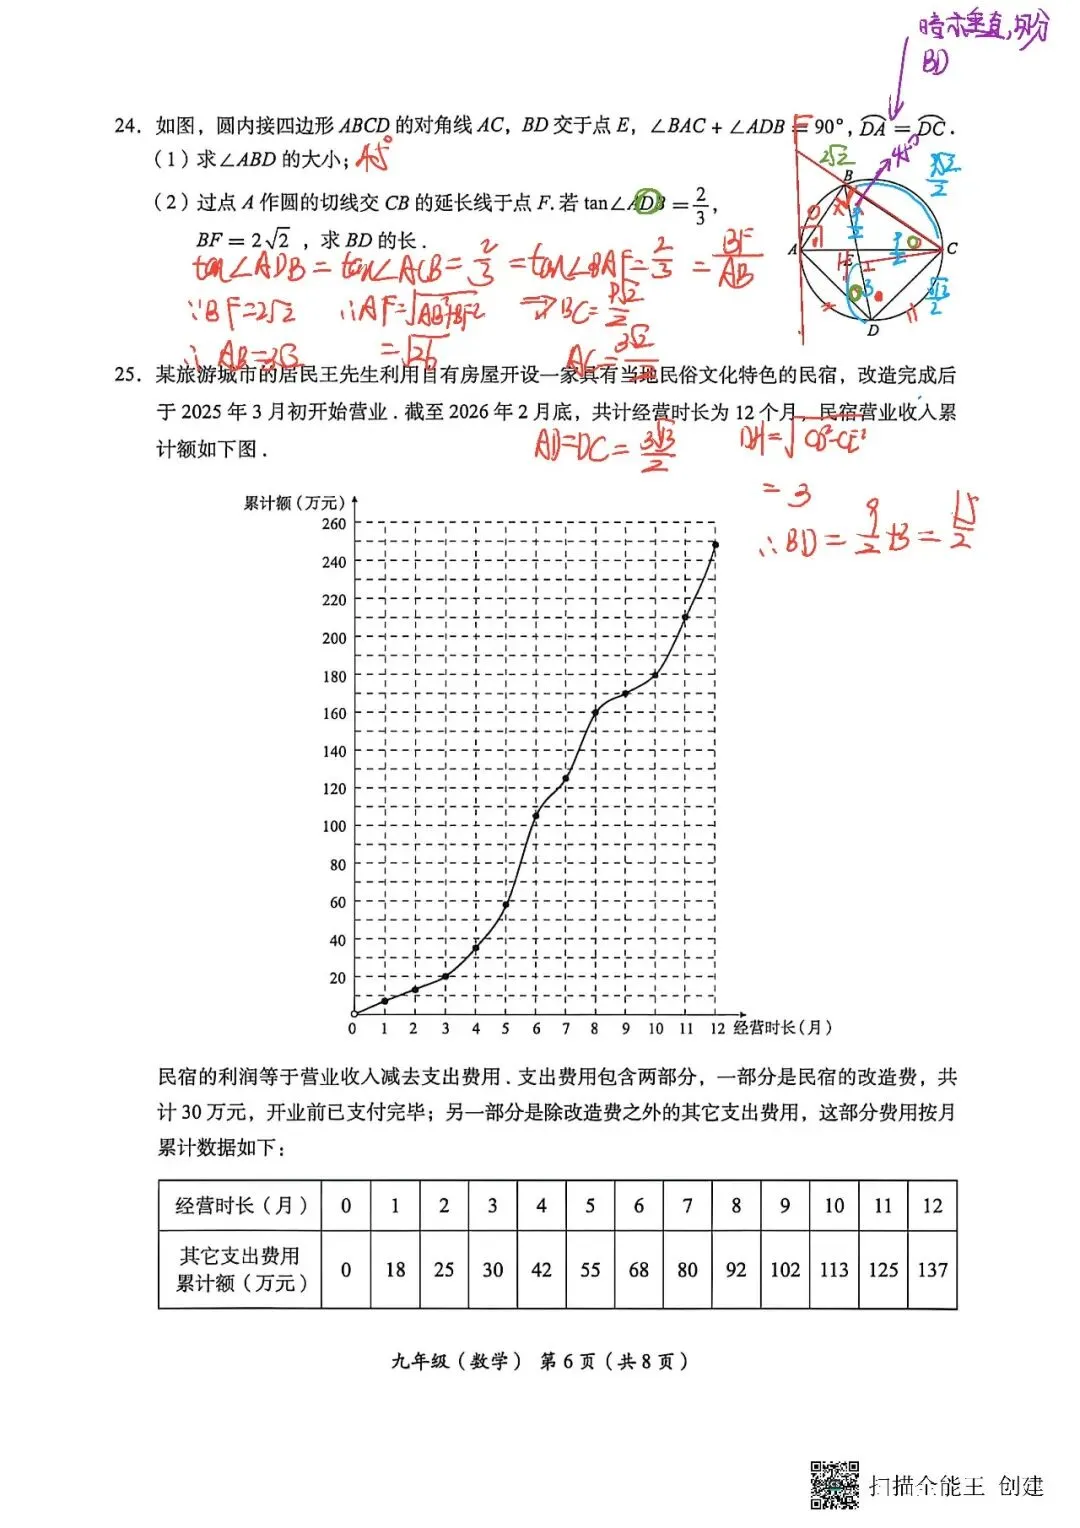 暗示垂直,平分
BD
24. 如图，圆内接四边形 ABCD 的对角线 AC，BD 交于点 E，∠BAC + ∠ADB = 90°，DA = DC .
(1) 求∠ABD 的大小； 45°
(2) 过点 A 作圆的切线交 CB 的延长线于点 F. 若 tan∠ADB = 2/3，
BF = 2√2 ，求 BD 的长 .
tan∠ADB = tan∠ACB = 2/3 = tan∠BAF = 2/3 = BF/AB
∵BF=2√2 ∴AF=√AB²+BF² ⇒BC=9√2/2
∴ AB=3√2 =√26
F
2√2
45°
B
A
E
C
H
D
3
25. 某旅游城市的居民王先生利用自有房屋开设一家具有当地民俗文化特色的民宿，改造完成后
于 2025 年 3 月初开始营业 . 截至 2026 年 2 月底，共计经营时长为 12 个月，民宿营业收入累
计额如下图 .
AD=DC= 3√13/2 DH=√CD²-CE²
= 3
∴BD= 9/2+3 = 15/2
累计额（万元）
260
240
220
200
180
160
140
120
100
80
60
40
20
0 1 2 3 4 5 6 7 8 9 10 11 12 经营时长（月）
民宿的利润等于营业收入减去支出费用 . 支出费用包含两部分，一部分是民宿的改造费，共
计 30 万元，开业前已支付完毕；另一部分是除改造费之外的其它支出费用，这部分费用按月
累计数据如下：
经营时长（月） 0 1 2 3 4 5 6 7 8 9 10 11 12
其它支出费用
累计额（万元） 0 18 25 30 42 55 68 80 92 102 113 125 137
九年级（数学） 第 6 页（共 8 页）
扫描全能王 创建